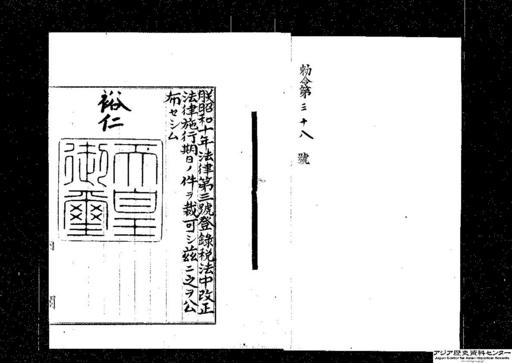 勅令第三十八號
朕昭和十年法律第三號登錄税法中改正
法律施行期日ノ件ヲ裁可シ茲ニ之ヲ公
布セシム
裕仁
天皇
御璽
内
閣
アジア歴史資料センター
Japan Center for Asian Historical Records